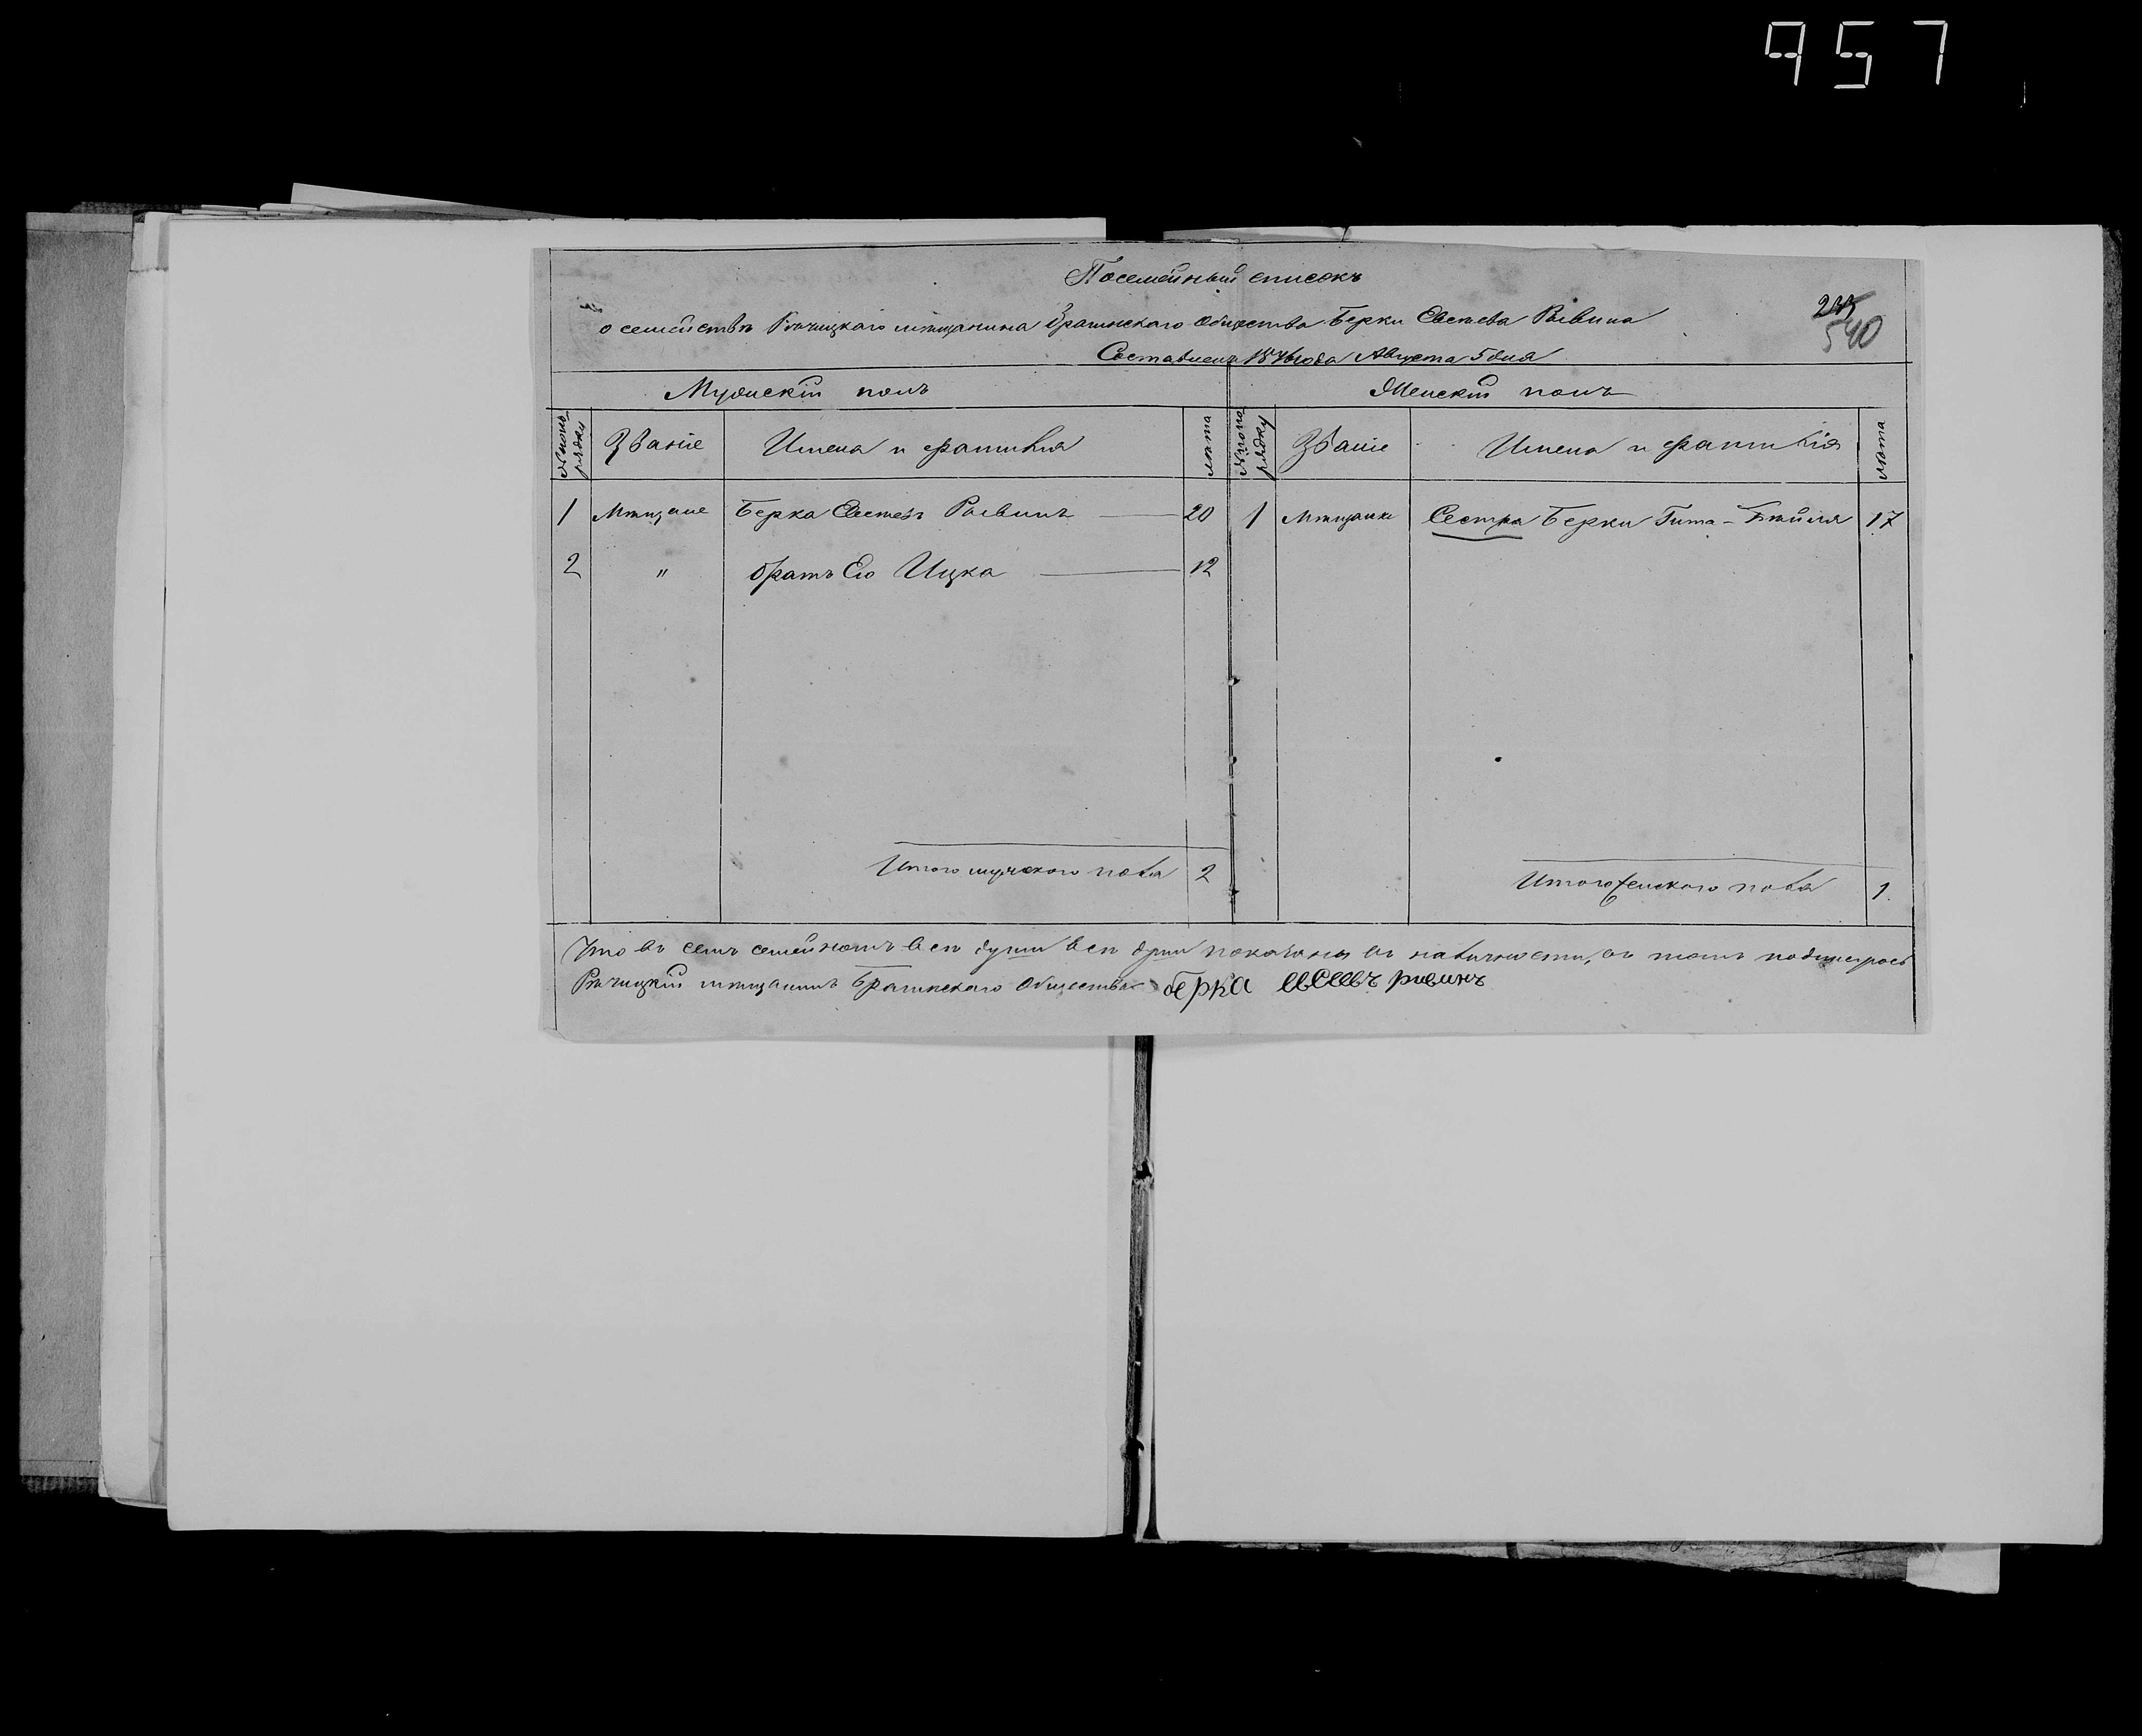 957
Посемейный списокъ
о семействѣ Рѣчицкаго мѣщанина Брагинскаго Общества Берки Евсеева Рывина
540
Составленъ 1874 года Августа 5 дня
Мужескій полъ Женскій полъ
№ по порядку Званіе Имена и фамилія лѣта № по порядку Званіе Имена и фамилія лѣта
1 Мѣщане Берка Евсеевъ Рывинъ 20 1 Мѣщанка Сестра Берки Гита - Бейля 17
2 " братъ Его Ицка 12
Итого мужского пола 2 Итого женского пола 1
Что въ семъ семейномъ всѣ души всѣ души показаны въ наличности, въ томъ подписуюсь
Рѣчицкій мѣщанинъ Брагинскаго Общества берка рывинъ